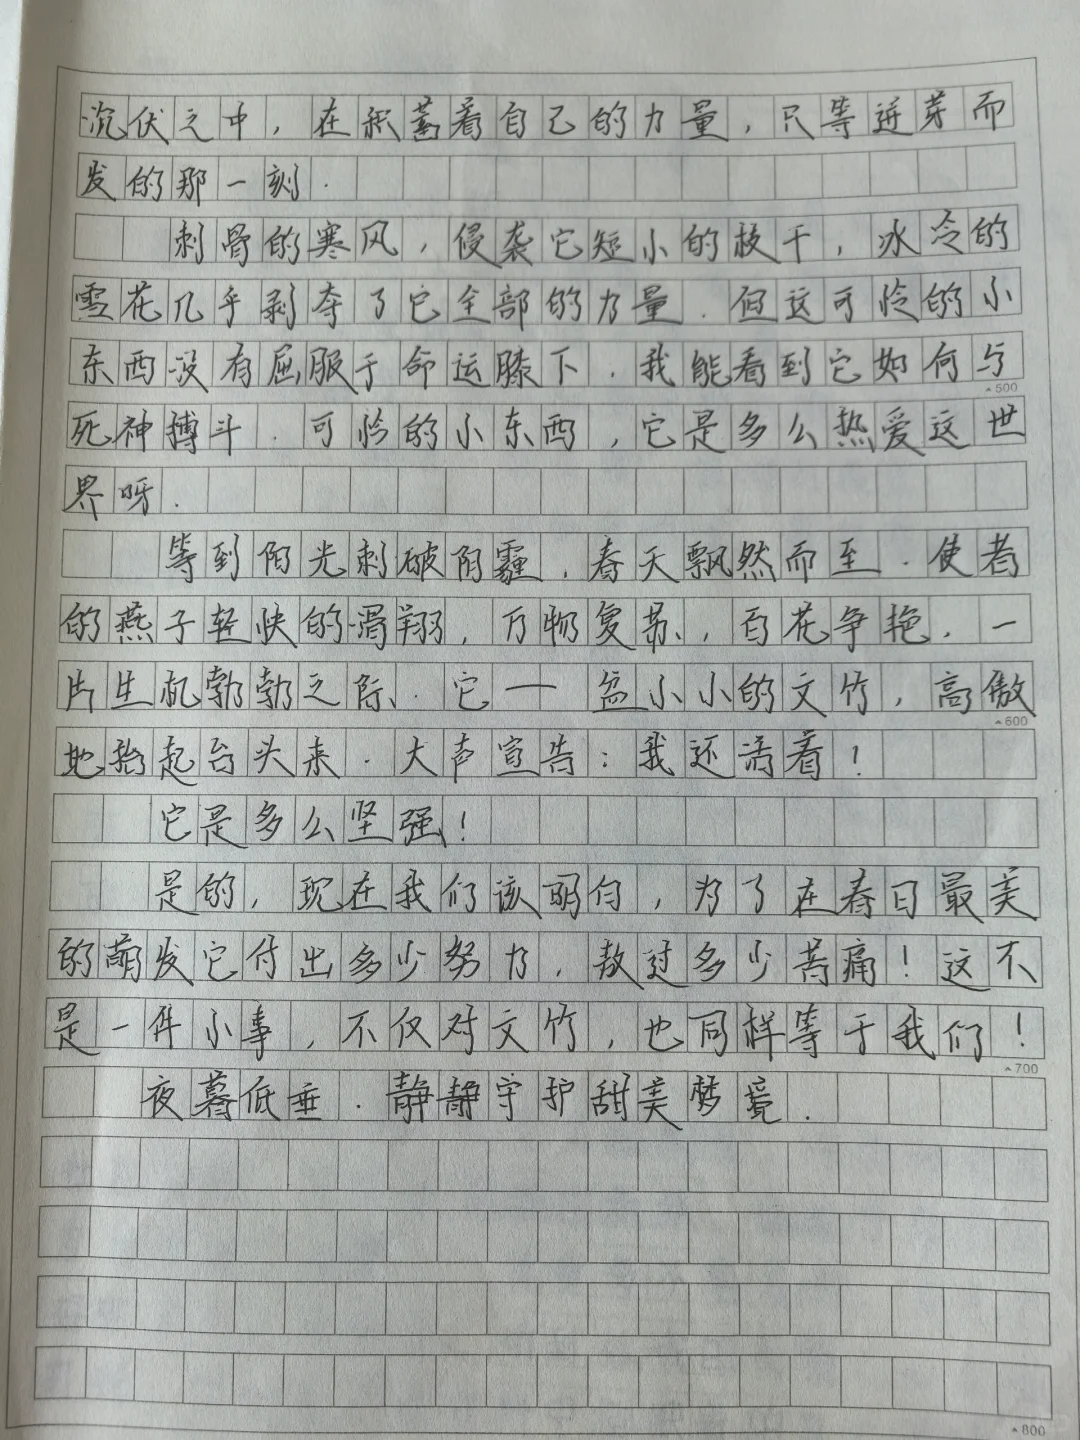 沉伏之中，在积蓄着自己的力量，只等迸芽而
发的那一刻．
刺骨的寒风，侵袭它短小的枝干，冰冷的
雪花几乎剥夺了它全部的力量．但这可怜的小
东西没有屈服于命运膝下．我能看到它如何与
▲500
死神搏斗．可怜的小东西，它是多么热爱这世
界呀．
等到阳光刺破阴霾，春天飘然而至．使者
的燕子轻快的滑翔，万物复苏，百花争艳，一
片生机勃勃之际．它一一盆小小的文竹，高傲
▲600
地抬起台头来．大声宣告：我还活着！
它是多么坚强！
是的，现在我们该明白，为了在春日最美
的萌发它付出多少努力，熬过多少苦痛！这不
是一件小事，不仅对文竹，也同样等于我们！
▲700
夜幕低垂．静静守护甜美梦境．
▲800